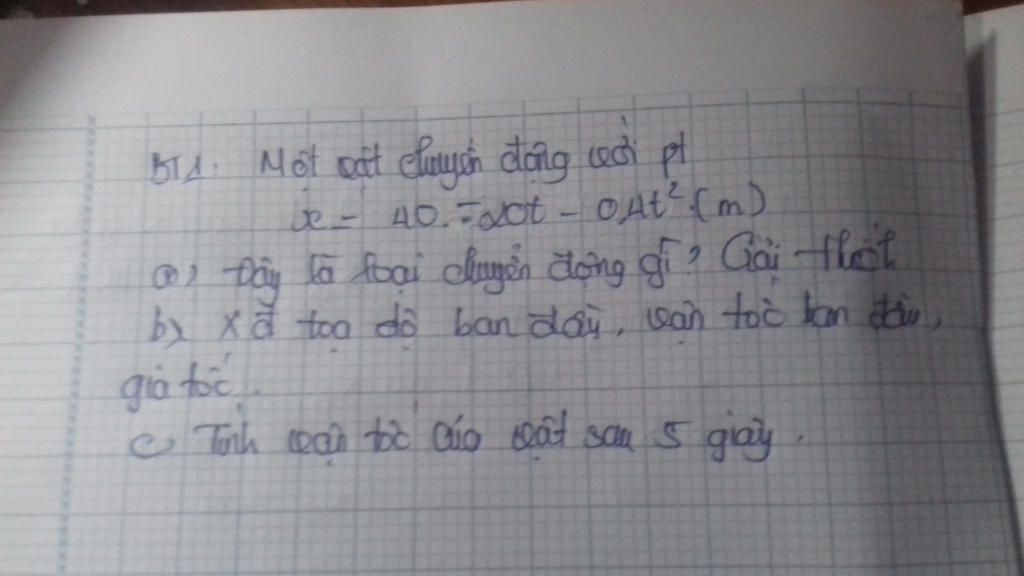 BT1: Một vật chuyển động với pt
x = 40 - 20t - 0,4t² (m)
a, Đây là loại chuyển động gì? Giải thích
b, Xđ tọa độ ban đầu, vận tốc ban đầu,
gia tốc.
c, Tính vận tốc của vật sau 5 giây.